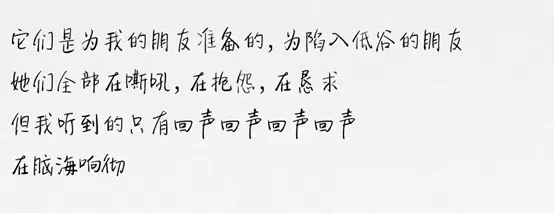 它们是为我的朋友准备的，为陷入低谷的朋友
她们全部在嘶吼，在抱怨，在恳求
但我听到的只有回声回声回声回声
在脑海响彻